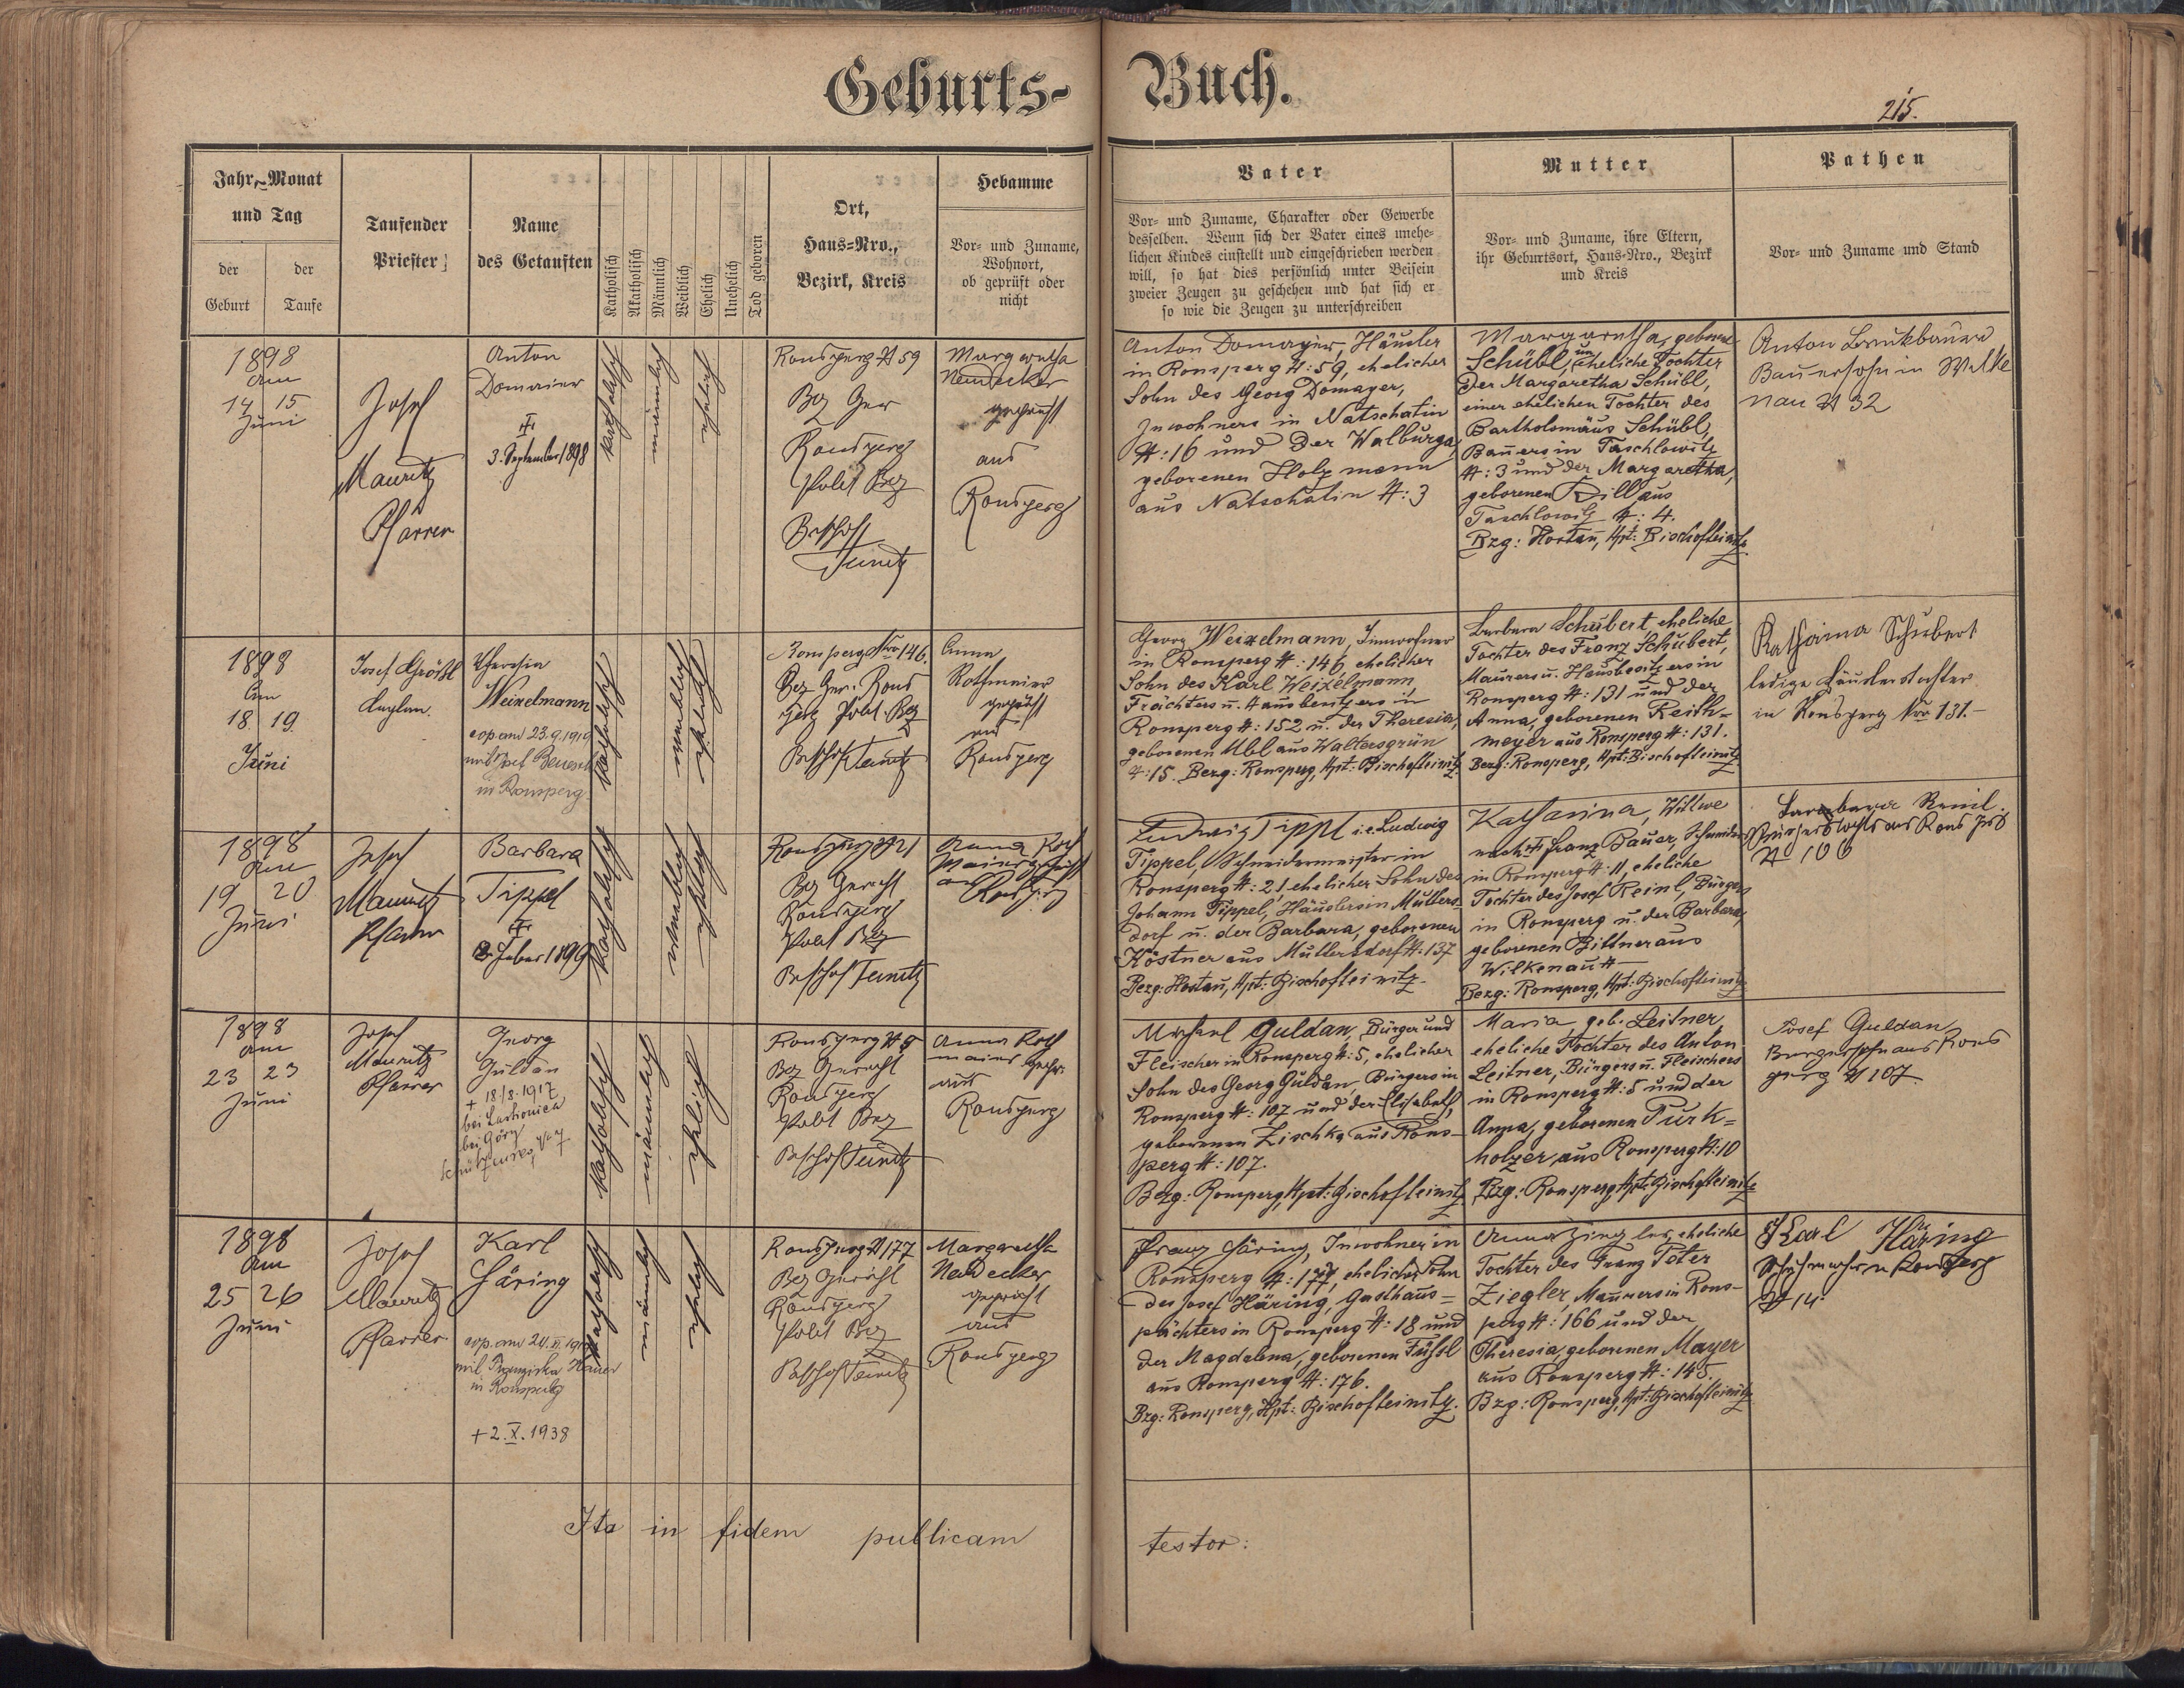 Geburts- Buch.
215.
Jahr, Monat
und Tag
der
Geburt
der
Taufe
Taufender
Priester
Name
des Getauften
Katholisch
Akatholisch
Männlich
Weiblich
Ehelich
Unehelich
Tod geboren
Ort,
Haus-Nro.,
Bezirk, Kreis
Hebamme
Vor- und Zuname,
Wohnort,
ob geprüft oder
nicht
Vater
Vor- und Zuname, Charakter oder Gewerbe
desselben. Wenn sich der Vater eines unehe-
lichen Kindes einstellt und eingeschrieben werden
will, so hat dies persönlich unter Beisein
zweier Zeugen zu geschehen und hat sich er
so wie die Zeugen zu unterschreiben
Mutter
Vor- und Zuname, ihre Eltern,
ihr Geburtsort, Haus-Nro., Bezirk
und Kreis
Pathen
Vor- und Zuname und Stand
1898
am
14 15
Juni
Josef
Mauritz
Pfarrer
Anton
Domaier
3. September 1898
katholisch
männlich
ehelich
Ronsperg # 59
Bez Ger
Ronsperg
Polit Bez
Bischof
Teinitz
Margaretha
Neudecker
geprüft
aus
Ronsperg
Anton Domayer, Häusler
in Ronsperg #: 59, ehelicher
Sohn des Georg Domayer,
Inwohners in Natschetin
#: 16 und der Walburga,
geborenen Holzmann
aus Natschetin #: 3
Margaretha, geborene
Schübl, uneheliche Tochter
der Margaretha Schübl,
einer ehelichen Tochter des
Bartholomäus Schübl,
Bauers in Taschlowitz
#: 3 und der Margaretha,
geborenen Dill aus
Taschlowitz #: 4.
Bzg: Hostau, Hpt: Bischofteinitz
Anton
Bauerssohn in Wilke
nau # 32
1898
am
18. 19.
Juni
Josef Größl
Kaplan.
Theresia
Weizelmann
cop. am 23.9.1919
mit Josef
in Ronsperg.
katholisch
weiblich
ehelich
Ronsperg Nro 146.
Bez Ger. Rons
perg Polit. Bez
Bischofteinitz
Anna
Rothmeier
geprüft
aus
Ronsperg
Georg Weizelmann, Innwohner
in Ronsperg #: 146, ehelicher
Sohn des Karl Weizelmann
Frächters u. Hausbesitzers in
Ronsperg #: 152 u. der Theresia,
geborenen Ubl aus Waltersgrün
#: 15. Bezg: Ronsperg, Hpt: Bischofteinitz
Barbara Schubert, eheliche
Tochter des Franz Schubert,
Maurers u. Hausbesitzers in
Ronsperg #: 131 und der
Anna, geborenen Reith-
meyer aus Ronsperg #: 131.
Bezg: Ronsperg, Hpt: Bischofteinitz
Katharina Schubert
ledige Häuslerstochter
in Ronsperg Nro 131.-
1898
am
19 20
Juni
Josef
Mauritz
Pfarrer
Barbara
Tippel
katholisch
weiblich
ehelich
Ronsperg # 21
Bez Gericht
Ronsperg
Polit Bez
Bischofteinitz
Anna Roth
maier geprüft
aus Ronsperg
Ludwig Tippl i.e. Ludwig
Tippel, Schneidermeister in
Ronsperg #: 21 ehelicher Sohn des
Johann Tippel, Häuslers in Mutters-
dorf u. der Barbara, geborenen
Köstner aus Muttersdorf #: 137
Bezg: Hostau, Hpt: Bischofteinitz.
Katharina, Witwe
nach † Franz Bauer, Schneider
in Ronsperg #: 11, eheliche
Tochter des Josef Reinl, Bürgers
in Ronsperg u. der Barbara,
geborenen Bittner aus
Wilkenau # —
Bezg: Ronsperg, Hpt: Bischofteinitz
Barbara Reinl
Bürgerstochter aus Ronsperg
# 106
1898
am
23 23
Juni
Josef
Mauritz
Pfarrer
Georg
Guldan
+ 18./8. 1917
bei
bei Görz
katholisch
männlich
ehelich
Ronsperg # 5
Bez Gericht
Ronsperg
Polit Bez
Bischofteinitz
Anna Roth
maier gepr.
aus
Ronsperg
Michael Guldan, Bürger und
Fleischer in Ronsperg #: 5, ehelicher
Sohn des Georg Guldan, Bürgers in
Ronsperg #: 107 und der Elisabeth,
geborenen Zischka aus Rons-
perg #: 107.
Bezg: Ronsperg, Hpt: Bischofteinitz
Maria, geb. Leitner,
eheliche Tochter des Anton
Leitner, Bürgers u. Fleischers
in Ronsperg #: 5 und der
Anna, geborenen Turk-
holzer, aus Ronsperg #: 10
Bzg: Ronsperg, Hpt: Bischofteinitz
Josef Guldan
Bürgerssohn aus Rons
perg # 107
1898
am
25 26
Juni
Josef
Mauritz
Pfarrer
Karl
Häring
cop. am 24. 
mit Franziska
in Ronsperg
+ 2. X. 1938
katholisch
männlich
ehelich
Ronsperg # 177
Bez Gericht
Ronsperg
Polit Bez
Bischofteinitz
Margaretha
Neudecker
geprüft
aus
Ronsperg
Franz Häring, Inwohner in
Ronsperg #: 177, ehelicher Sohn
des Josef Häring, Gasthaus-
pächters in Ronsperg #: 18 und
der Magdalena, geborenen Füssl
aus Ronsperg #: 176.
Bzg: Ronsperg, Hpt: Bischofteinitz.
Anna Ziegler, eheliche
Tochter des Franz Peter
Ziegler, Maurers in Rons-
perg #: 166 und der
Theresia, geborenen Mayer
aus Ronsperg #: 145.
Bzg: Ronsperg, Hpt: Bischofteinitz
Karl Häring
Schuhmacher in Ronsperg
# 14.
Ita in fidem publicam testor: